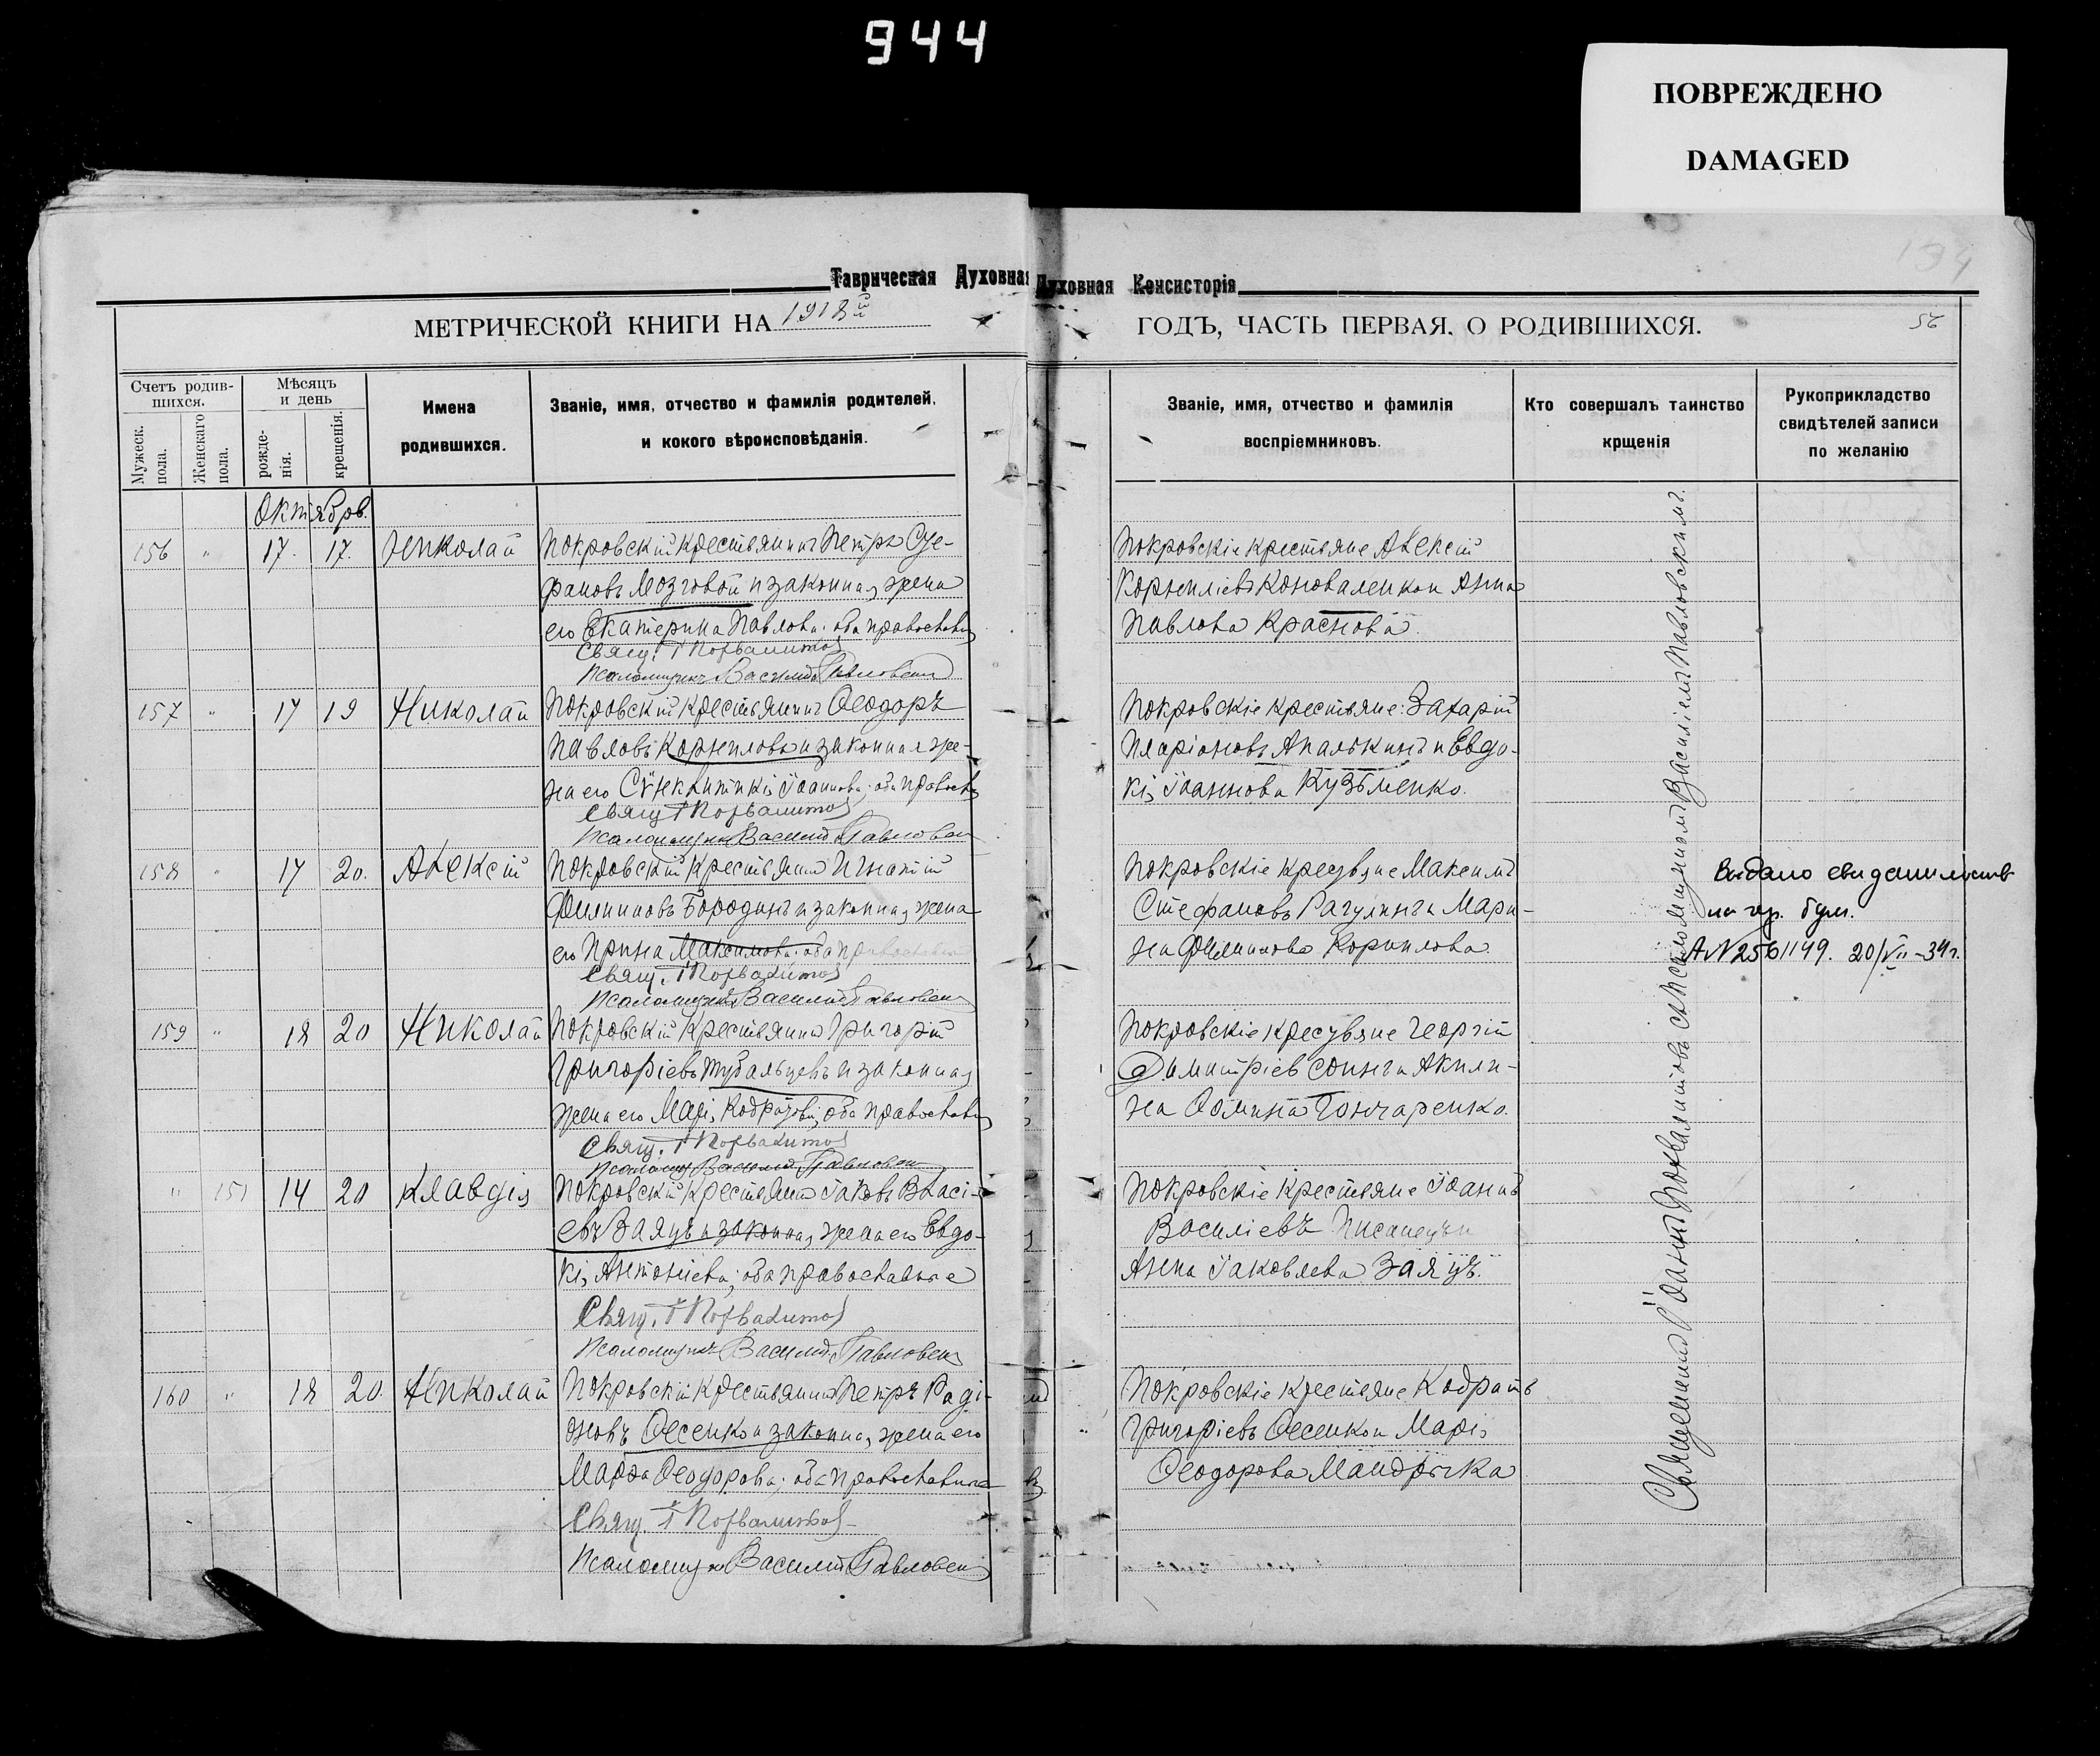 944
ПОВРЕЖДЕНО
DAMAGED
Таврическая Духовная
Духовная Консисторія
МЕТРИЧЕСКОЙ КНИГИ НА 1918й
ГОДЪ, ЧАСТЬ ПЕРВАЯ, О РОДИВШИХСЯ.
194
56
Счетъ родив-
шихся.
Мужеск. пола.
Женскаго пола.
Мѣсяцъ
и день
рожде-
нія.
крещенія.
Имена
родившихся.
Званіе, имя, отчество и фамилія родителей,
и кокого вѣроисповѣданія.
Званіе, имя, отчество и фамилія
воспріемниковъ.
Кто совершалъ таинство
крщенія
Рукоприкладство
свидѣтелей записи
по желанію
Октябрь.
156 " 17. 17. Николай Покровскій крестьянинъ Петръ Сте-
фановъ Мозговой и законная жена
его Екатерина Павлова; оба православн
Свящ. І Похвалитов
Псаломщикъ Василій Павловскій
Покровскіе крестьяне Алексій
Корниліевъ Коноваленко и Анна
Павлова Краснова.
157 " 17 19 Николай Покровскій крестьянинъ Ѳеодоръ
Павловъ Корниловъ и законная же-
на его Сѵнклитикія Іоаннова; оба православ
Свящ. І Похвалитов
Псаломщикъ Василій Павловскій
Покровскіе крестьяне: Захарій
Иларіоновъ Апалькинъ и Евдо-
кія Іоаннова Кузьменко.
158 " 17 20. Алексій Покровскій крестьянинъ Игнатій
Филипповъ Бородинъ и законная жена
его Ирина Максимова; оба православные
Свящ. І Похвалитов
Псаломщикъ Василій Павловскій
Покровскіе крестьяне Максимъ
Стефановъ Рагулинъ и Мари-
на Филиппова Корнилова.
Выдано свидетельств
на гр. бум.
АN 2561149. 20/VII-34г.
159 " 18 20 Николай Покровскій крестьянинъ Григорій
Григоріевъ Тубальцевъ и законная
жена его Марія Кодратова; оба православн
Свящ. І Похвалитов
Псаломщ Василій Павловскій
Покровскіе крестьяне Георгій
Димитріев Соинъ и Акили-
на Ѳомина Гончаренко.
" 151 14 20 Клавдія Покровскій крестьянинъ Іаковъ Власі-
евъ Заяцъ и законная жена его Евдо-
кія Антоніева; оба православные
Свящ. І Похвалитов
Псаломщикъ Василій Павловскій
Покровскіе крестьяне Іоаннъ
Василіевъ Писанецъ и
Анна Іаковлева Заяцъ.
160 " 18 20. Николай Покровскій крестьянинъ Петръ Роді-
оновъ Овсенко и законная жена его
Марѳа Ѳеодорова; оба православные
Свящ. І Похвалитов
Псаломщик Василій Павловскій
Покровскіе крестьяне Кодратъ
Григоріевъ Овсенко и Марія
Ѳеодорова Мандрыка
Священникъ Іоаннъ Похвалитовъ съ Псаломщикомъ Василіемъ Павловскимъ.